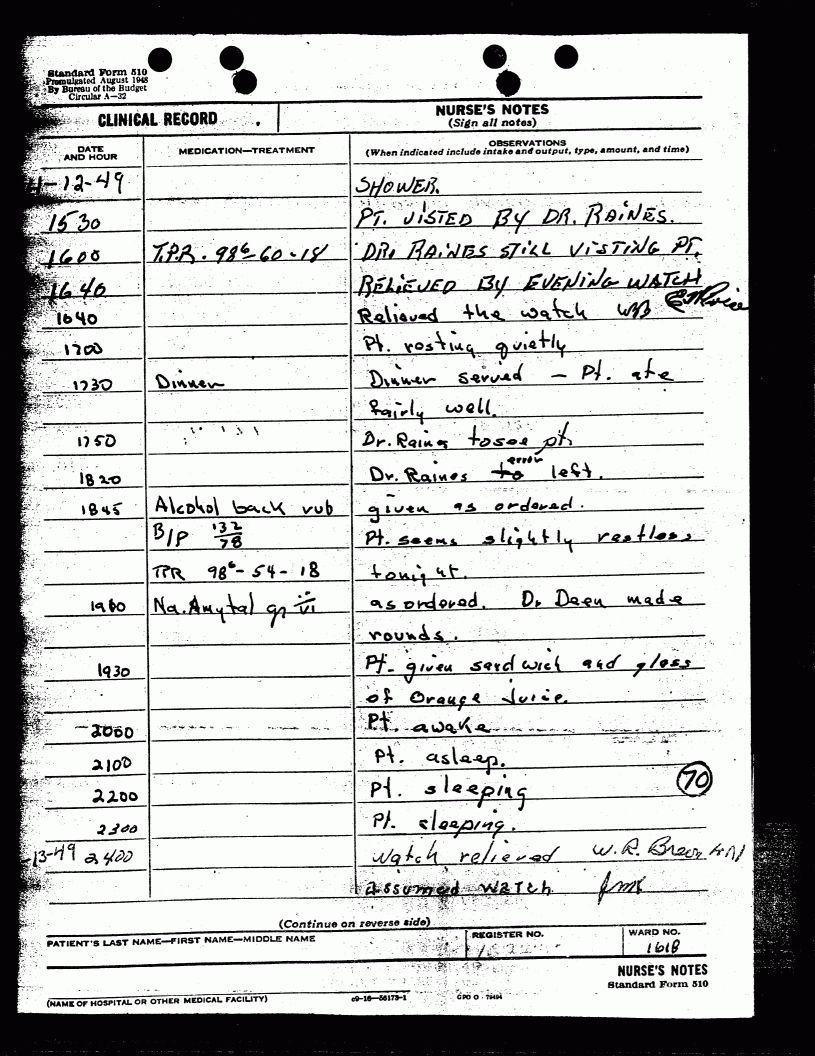 Standard Form 510
Promulgated August 1948
By Bureau of the Budget
Circular A—32
CLINICAL RECORD
NURSE'S NOTES
(Sign all notes)
DATE AND HOUR
MEDICATION—TREATMENT
OBSERVATIONS
(When indicated include intake and output, type, amount, and time)
4-12-49 SHOWER.
1530 PT. VISTED BY DR. RAINES.
1600 T.P.R. - 98⁶-60-18 DR. RAINES STILL VISTING PT.
1640 RELIEVED BY EVENING WATCH
1640 Relieved the watch
1700 Pt. resting quietly
1730 Dinner Dinner served — Pt. ate
fairly well.
1750 Dr. Raines to see pt.
error
1820 Dr. Raines to left.
1845 Alcohol back rub given as ordered.
B/P 132/78 Pt. seems slightly restless
TPR 98⁶-54-18 tonight.
1900 Na. Amytal gr vi as ordered. Dr Deen made
rounds.
1930 Pt. given sandwich and glass
of Orange Juice.
2000 Pt. awake
2100 Pt. asleep.
2200 Pt. sleeping
70
2300 Pt. sleeping.
-13-49 2400 Watch relieved W.R.
assumed watch
(Continue on reverse side)
PATIENT'S LAST NAME—FIRST NAME—MIDDLE NAME
REGISTER NO.
WARD NO.
1618
NURSE'S NOTES
Standard Form 510
(NAME OF HOSPITAL OR OTHER MEDICAL FACILITY)
c9-16—56173-1
GPO O - 79494